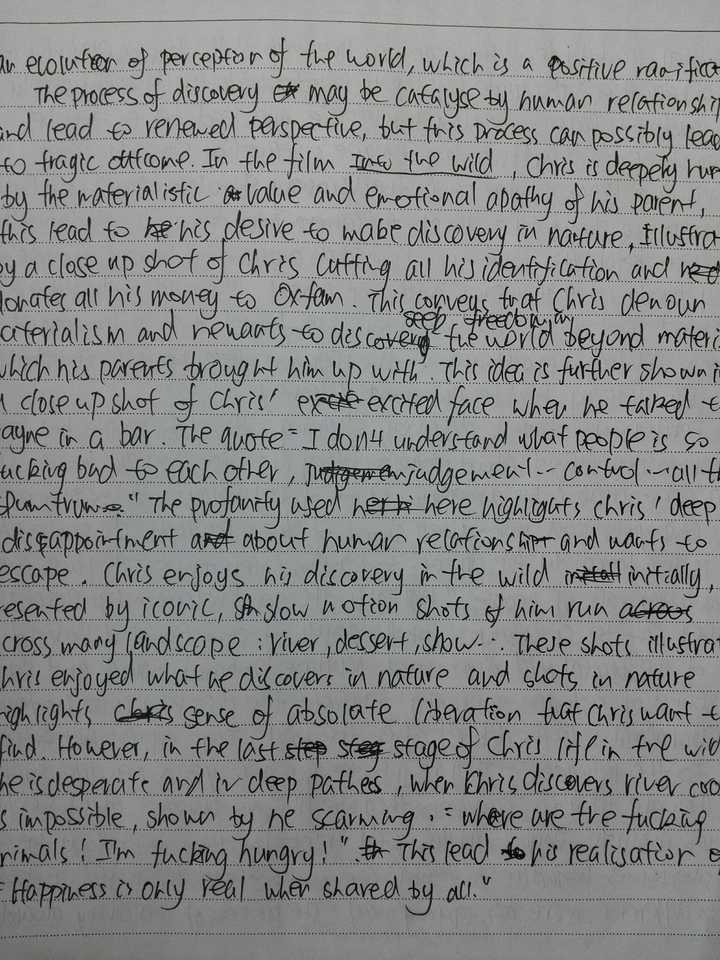 an evolution of perception of the world, which is a positive ramificat
The process of discovery may be catalyse by human relationship
and lead to renewed perspective, but this process can possibly lead
to tragic outcome. In the film Into the wild, Chris is deeply hur
by the materialistic value and emotional apathy of his parent,
this lead to his desire to make discovery in nature, Illustra
by a close up shot of Chris cutting all his identification and
donates all his money to Oxfam. This conveys that Chris denoun
aterialism and he wants to seek freedom in the world beyond materi
which his parents brought him up with. This idea is further shown i
a close up shot of Chris' excited face when he talked t
ayne in a bar. The quote "I don't understand what people is so
fucking bad to each other, judgement... control... all th
" The profanity used here highlights chris' deep
disappointment about human relationship and wants to
escape. Chris enjoys his discovery in the wild initially,
resented by iconic, slow motion shots of him run
cross many landscape: river, dessert, show... These shots illustra
hris enjoyed what he discovers in nature and shots in nature
highlights sense of absolute liberation that Chris want t
find. However, in the last stage of Chris life in the wil
he is desperate and in deep pathes, when Chris discovers river cro
s impossible, shown by he scarming: "where are the fucking
nimals! I'm fucking hungry!" This lead his realisation o
"Happiness is only real when shared by all."